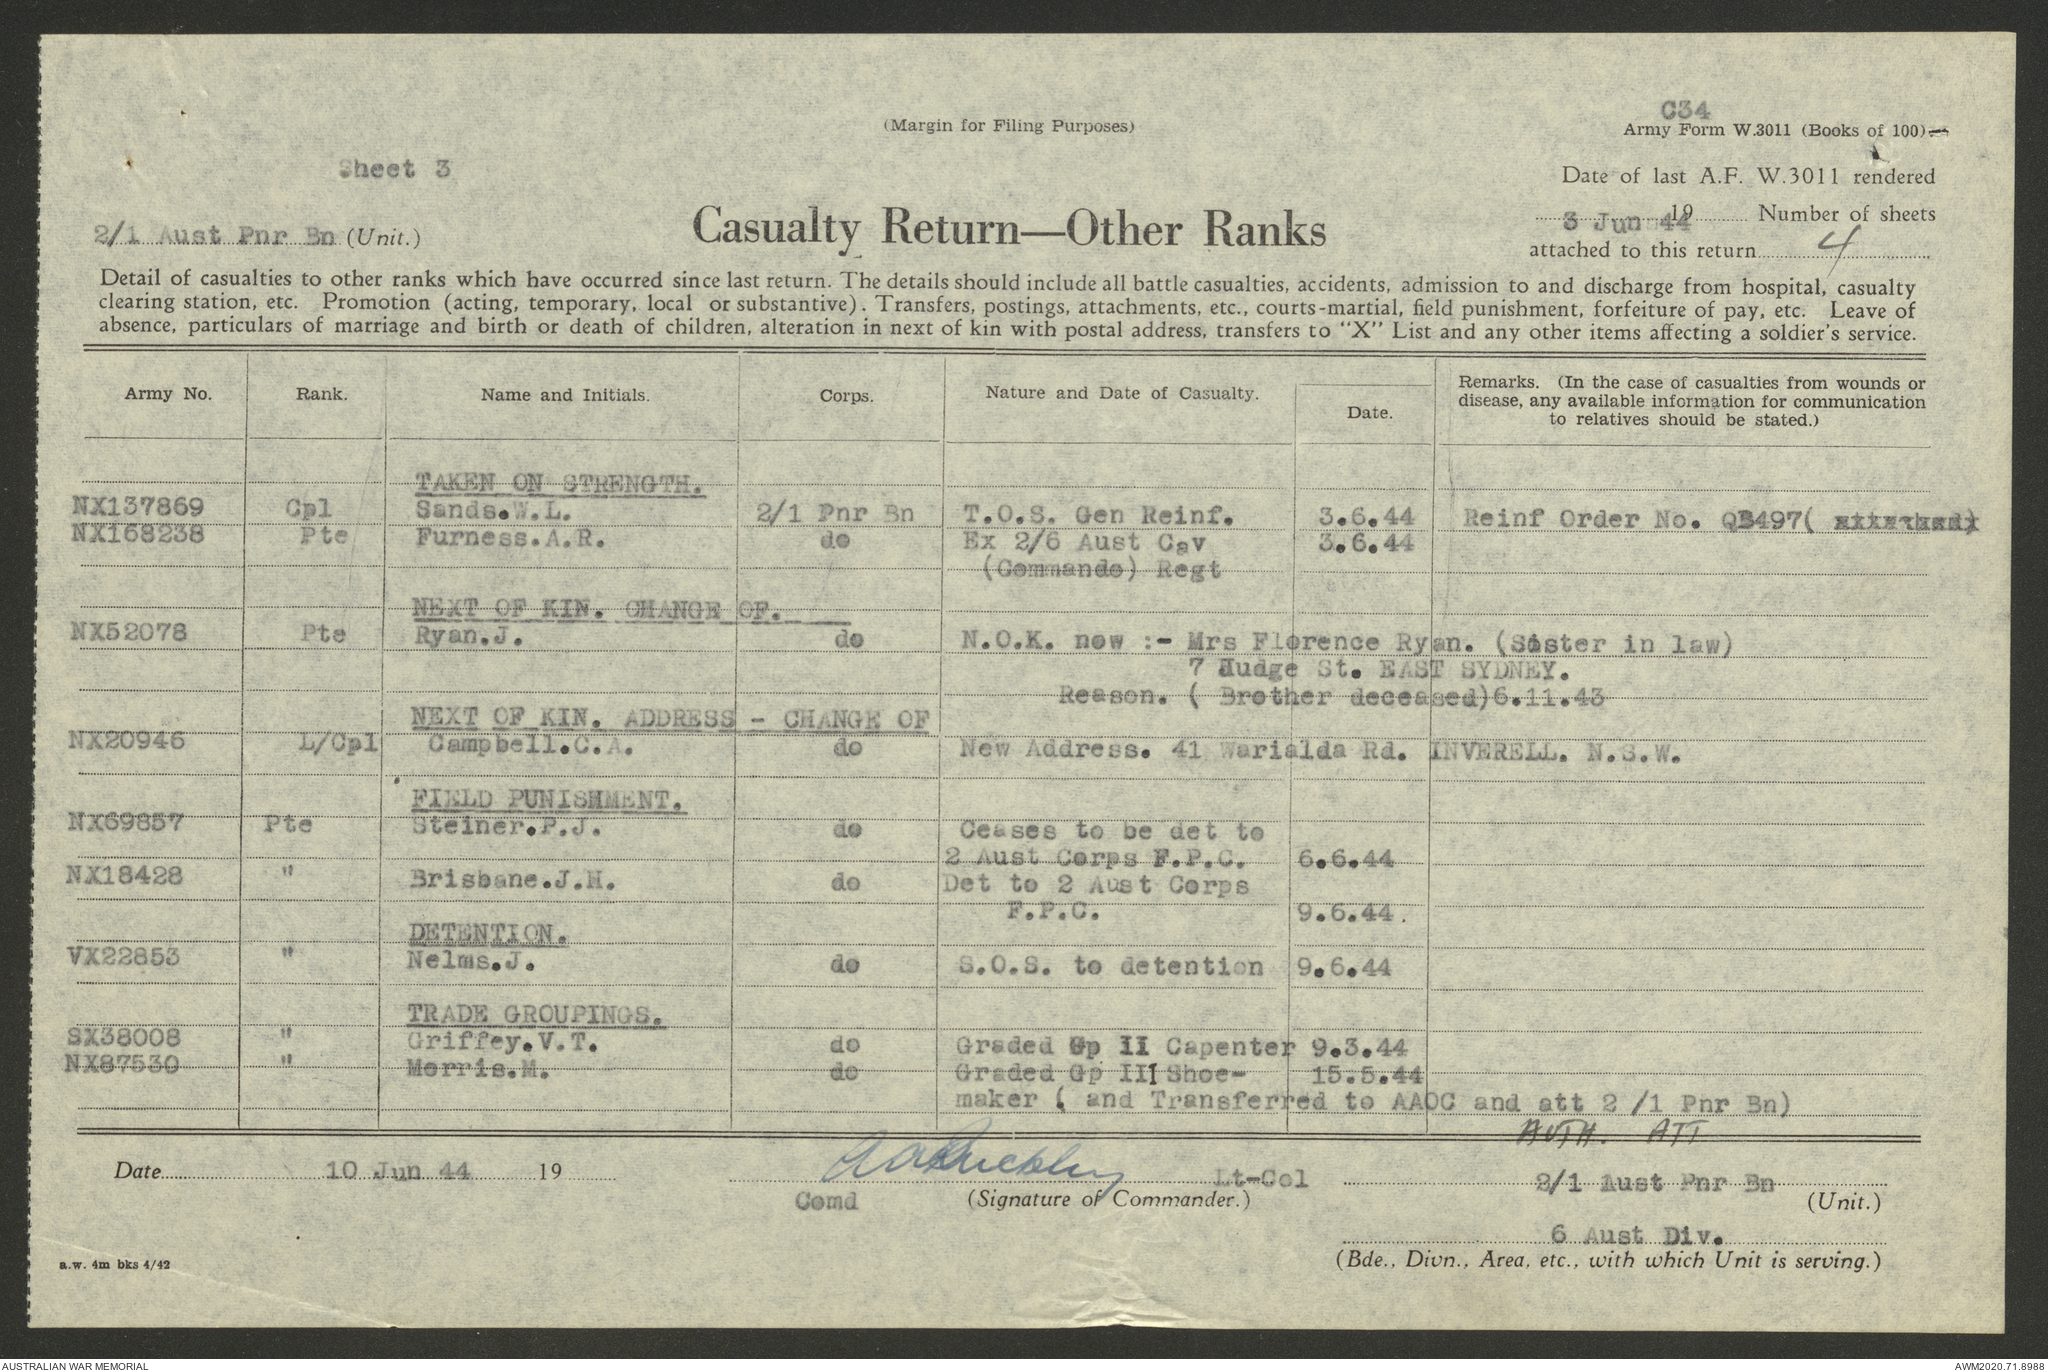 C34
(Margin for Filing Purposes)
Army Form W.3011 (Books of 100)
Sheet 3
Date of last A.F. W.3011 rendered
3 Jun 44 19 Number of sheets
2/1 Aust Pnr Bn (Unit.)
Casualty Return—Other Ranks
attached to this return 4
Detail of casualties to other ranks which have occurred since last return. The details should include all battle casualties, accidents, admission to and discharge from hospital, casualty
clearing station, etc. Promotion (acting, temporary, local or substantive). Transfers, postings, attachments, etc., courts-martial, field punishment, forfeiture of pay, etc. Leave of
absence, particulars of marriage and birth or death of children, alteration in next of kin with postal address, transfers to "X" List and any other items affecting a soldier's service.
Army No. Rank. Name and Initials. Corps. Nature and Date of Casualty. Date. Remarks. (In the case of casualties from wounds or
disease, any available information for communication
to relatives should be stated.)
TAKEN ON STRENGTH.
NX137869 Cpl Sands.W.L. 2/1 Pnr Bn T.O.S. Gen Reinf. 3.6.44 Reinf Order No. QB497(
NX168238 Pte Furness.A.R. do Ex 2/6 Aust Cav 3.6.44
(Commando) Regt
NEXT OF KIN. CHANGE OF.
NX52078 Pte Ryan.J. do N.O.K. now :- Mrs Florence Ryan. (Sister in law)
7 Judge St. EAST SYDNEY.
Reason. ( Brother deceased)6.11.43
NEXT OF KIN. ADDRESS - CHANGE OF
NX20946 L/Cpl Campbell.C.A. do New Address. 41 Warialda Rd. INVERELL. N.S.W.
FIELD PUNISHMENT.
NX69857 Pte Steiner.P.J. do Ceases to be det to
2 Aust Corps F.P.C. 6.6.44
NX18428 " Brisbane.J.H. do Det to 2 Aust Corps
F.P.C. 9.6.44.
DETENTION.
VX22853 " Nelms.J. do S.O.S. to detention 9.6.44
TRADE GROUPINGS.
SX38008 " Griffey.V.T. do Graded Gp II Capenter 9.3.44
NX87530 " Morris.M. do Graded Gp III Shoe- 15.5.44
maker ( and Transferred to AAOC and att 2 /1 Pnr Bn)
AUTH. ATT
Date 10 Jun 44 19
Lt-Col
Comd (Signature of Commander.)
2/1 Aust Pnr Bn
(Unit.)
6 Aust Div.
(Bde., Divn., Area, etc., with which Unit is serving.)
a.w. 4m bks 4/42
AUSTRALIAN WAR MEMORIAL
AWM2020.71.8988